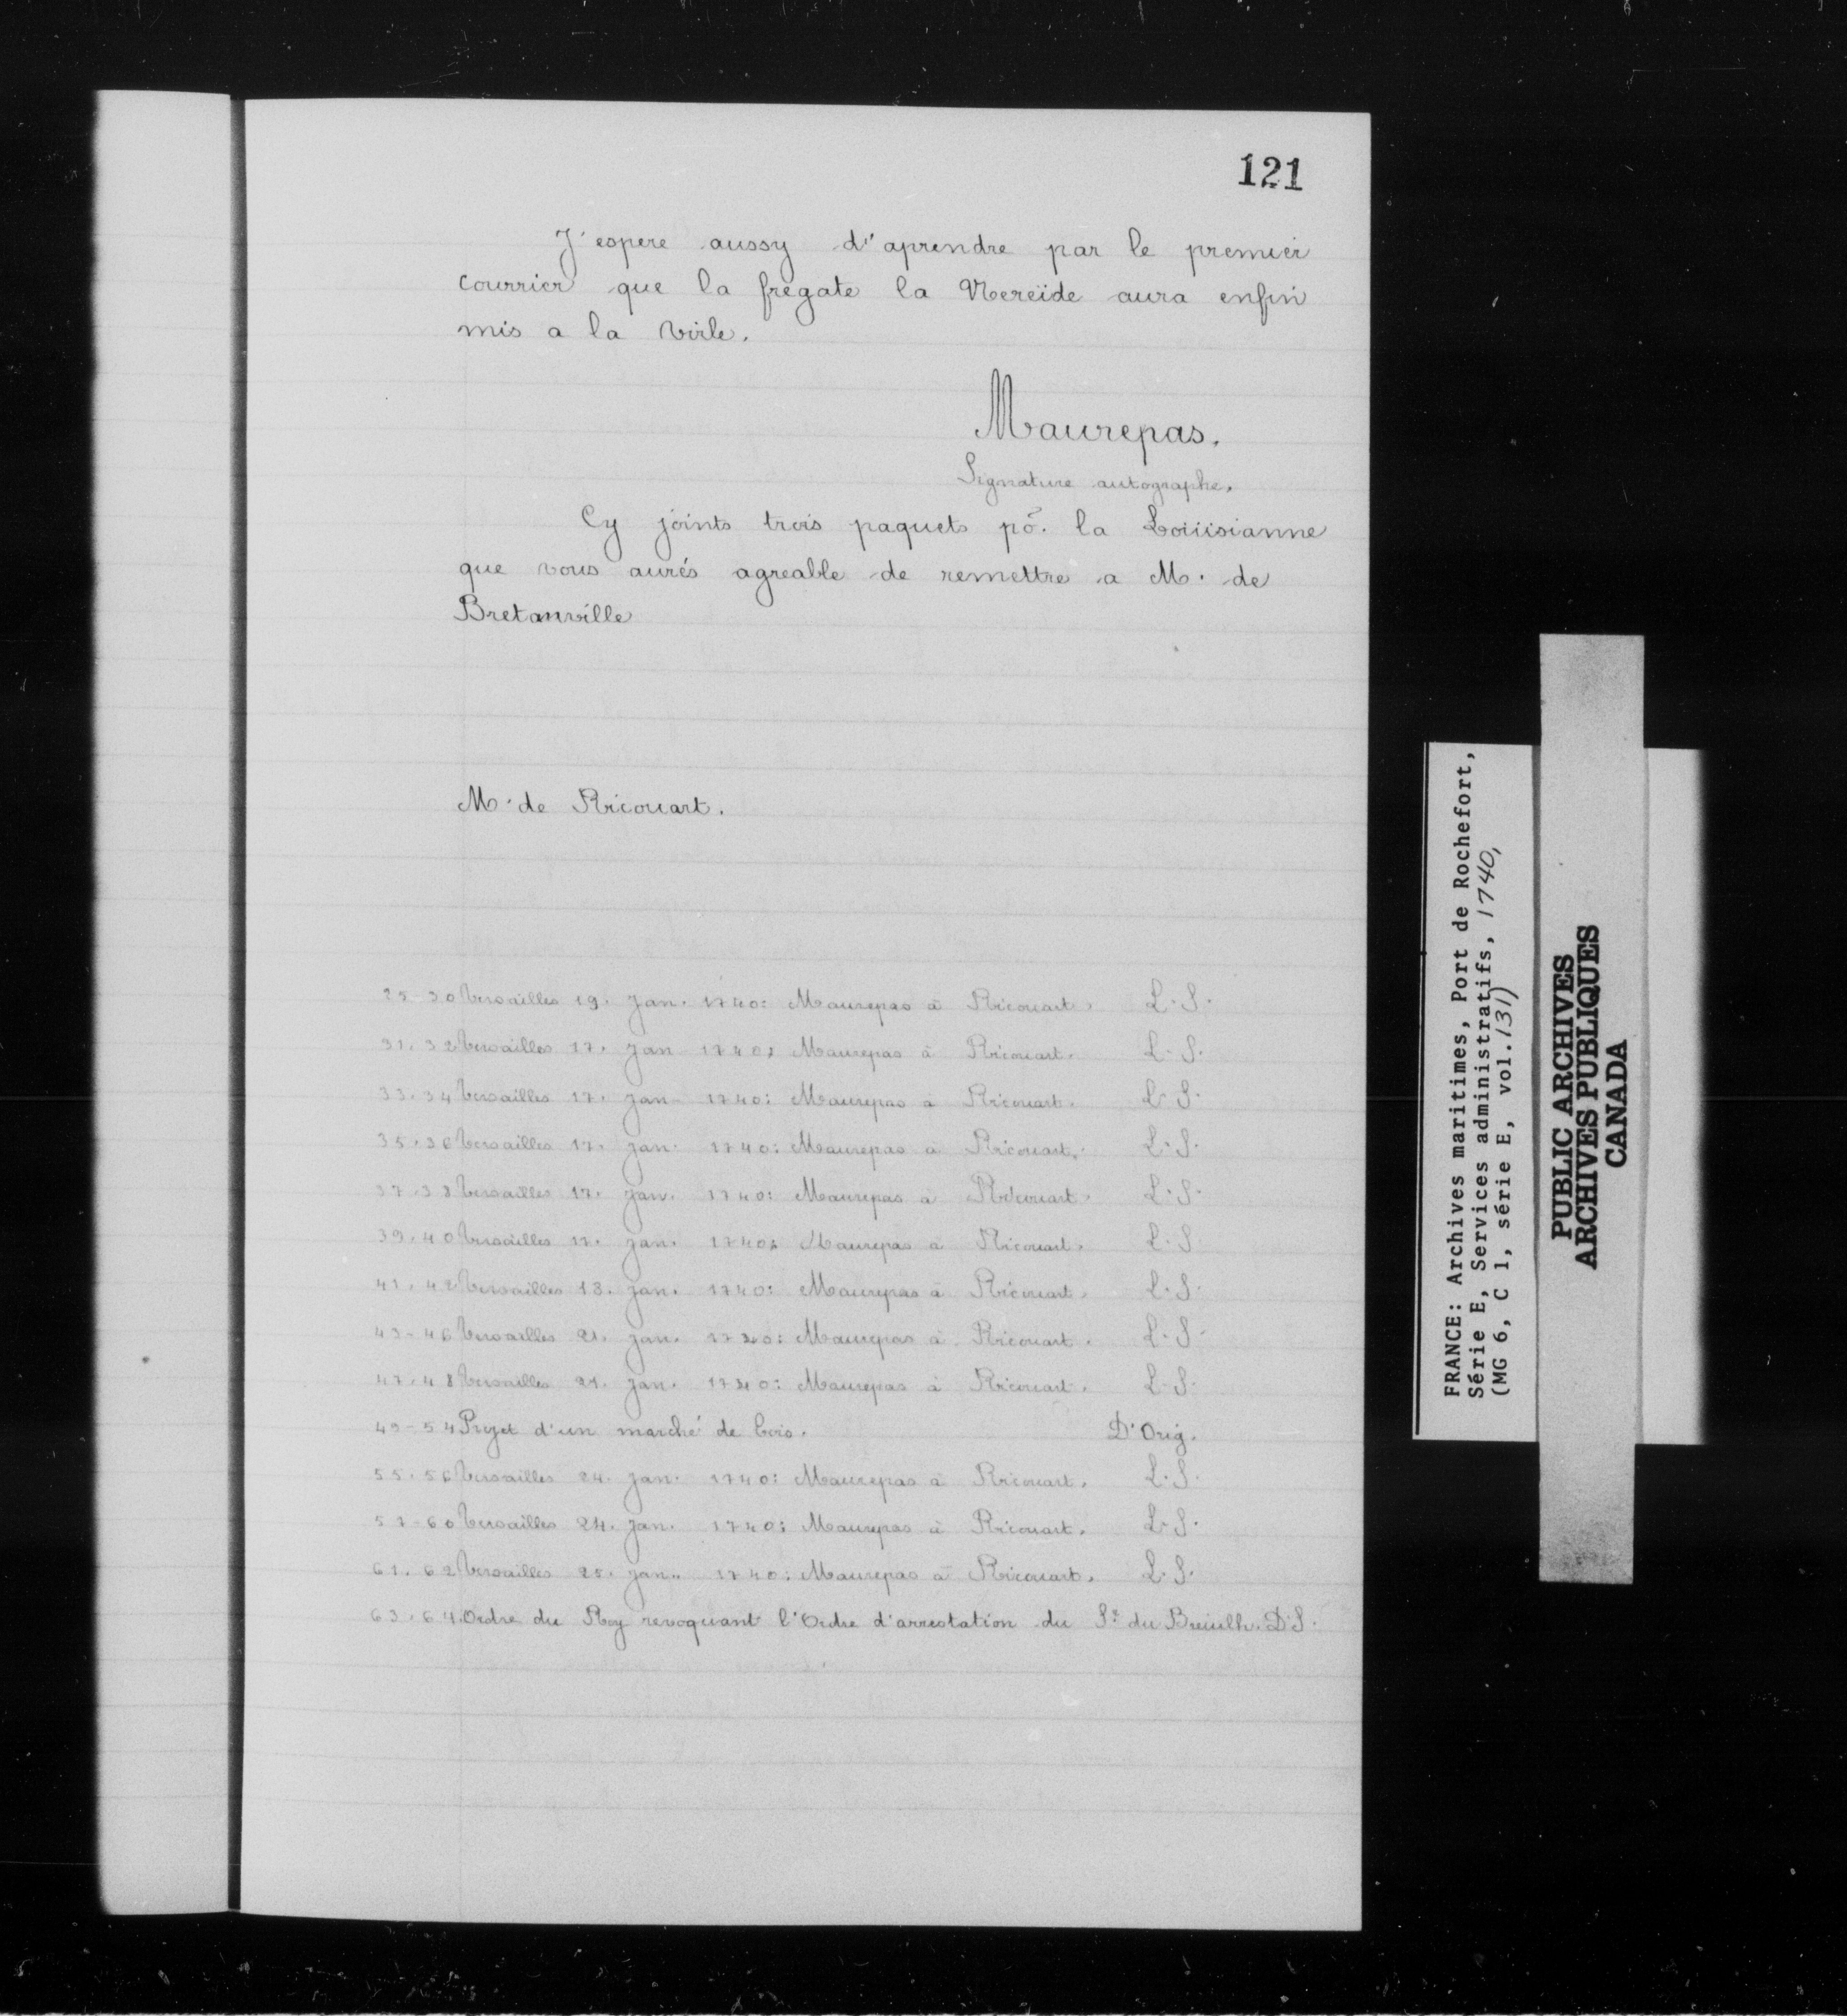 121
J'espere aussy d'aprendre par le premier
courrier que la fregate la Nereïde aura enfin
mis a la virle.
Maurepas.
Signature autographe.
Cy joints trois paquets po. la Loüisianne
que vous aurés agreable de remettre a M. de
Bretanville
M. de Ricouart.
25-30 Versailles 19. Jan. 1740: Maurepas à Ricouart. L.S.
31.32 Versailles 17. Jan 1740: Maurepas à Ricouart. L.S.
33.34 Versailles 17. Jan. 1740: Maurepas a Ricouart. L.S.
35.36 Versailles 17. Jan. 1740: Maurepas a Ricouart. L.S.
37.38 Versailles 17. Jan. 1740: Maurepas à Ricouart. L.S.
39.40 Versailles 17. Jan. 1740: Maurepas à Ricouart. L.S.
41.42 Versailles 13. Jan. 1740: Maurepas à Ricouart. L.S.
43-46 Versailles 21. Jan. 1740: Maurepas à Ricouart. L.S.
47.48 Versailles 21. Jan. 1740: Maurepas à Ricouart. L.S.
49-54 Projet d'un marché de bois. D'Orig.
55.56 Versailles 24. Jan. 1740: Maurepas à Ricouart. L.S.
57-60 Versailles 24. Jan. 1740: Maurepas à Ricouart. L.S.
61.62 Versailles 25. Jan. 1740: Maurepas à Ricouart. L.S.
63.64 Ordre du Roy revoquant l'Ordre d'arrestation du Sr. du Breuilh. D.S.
FRANCE: Archives maritimes, Port de Rochefort,
Série E, Services administratifs, 1740,
(MG 6, C 1, série E, vol. 131)
PUBLIC ARCHIVES
ARCHIVES PUBLIQUES
CANADA